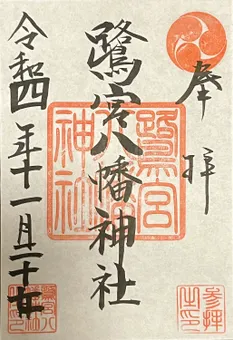 奉拝
鷺宮八幡神社
令和四年十一月二
鷺宮
八幡
神社
参拝
之印